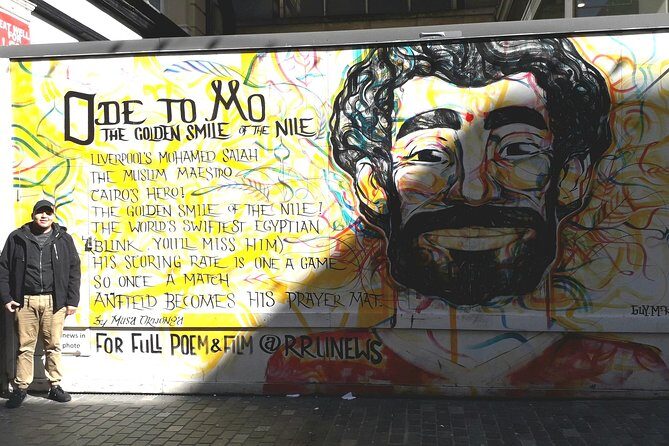 EAT WELL
FOR
ODE TO MO
THE GOLDEN SMILE OF THE NILE
LIVERPOOL'S MOHAMED SALAH
THE MUSLIM MAESTRO
CAIRO'S HERO!
THE GOLDEN SMILE OF THE NILE!
THE WORLD'S SWIFTEST EGYPTIAN
(BLINK, YOU'LL MISS HIM)
HIS SCORING RATE IS ONE A GAME
SO ONCE A MATCH
ANFIELD BECOMES HIS PRAYER MAT.
By Musa Okwonga
FOR FULL POEM & FILM @RRUNEWS
news in
photo
GUY.